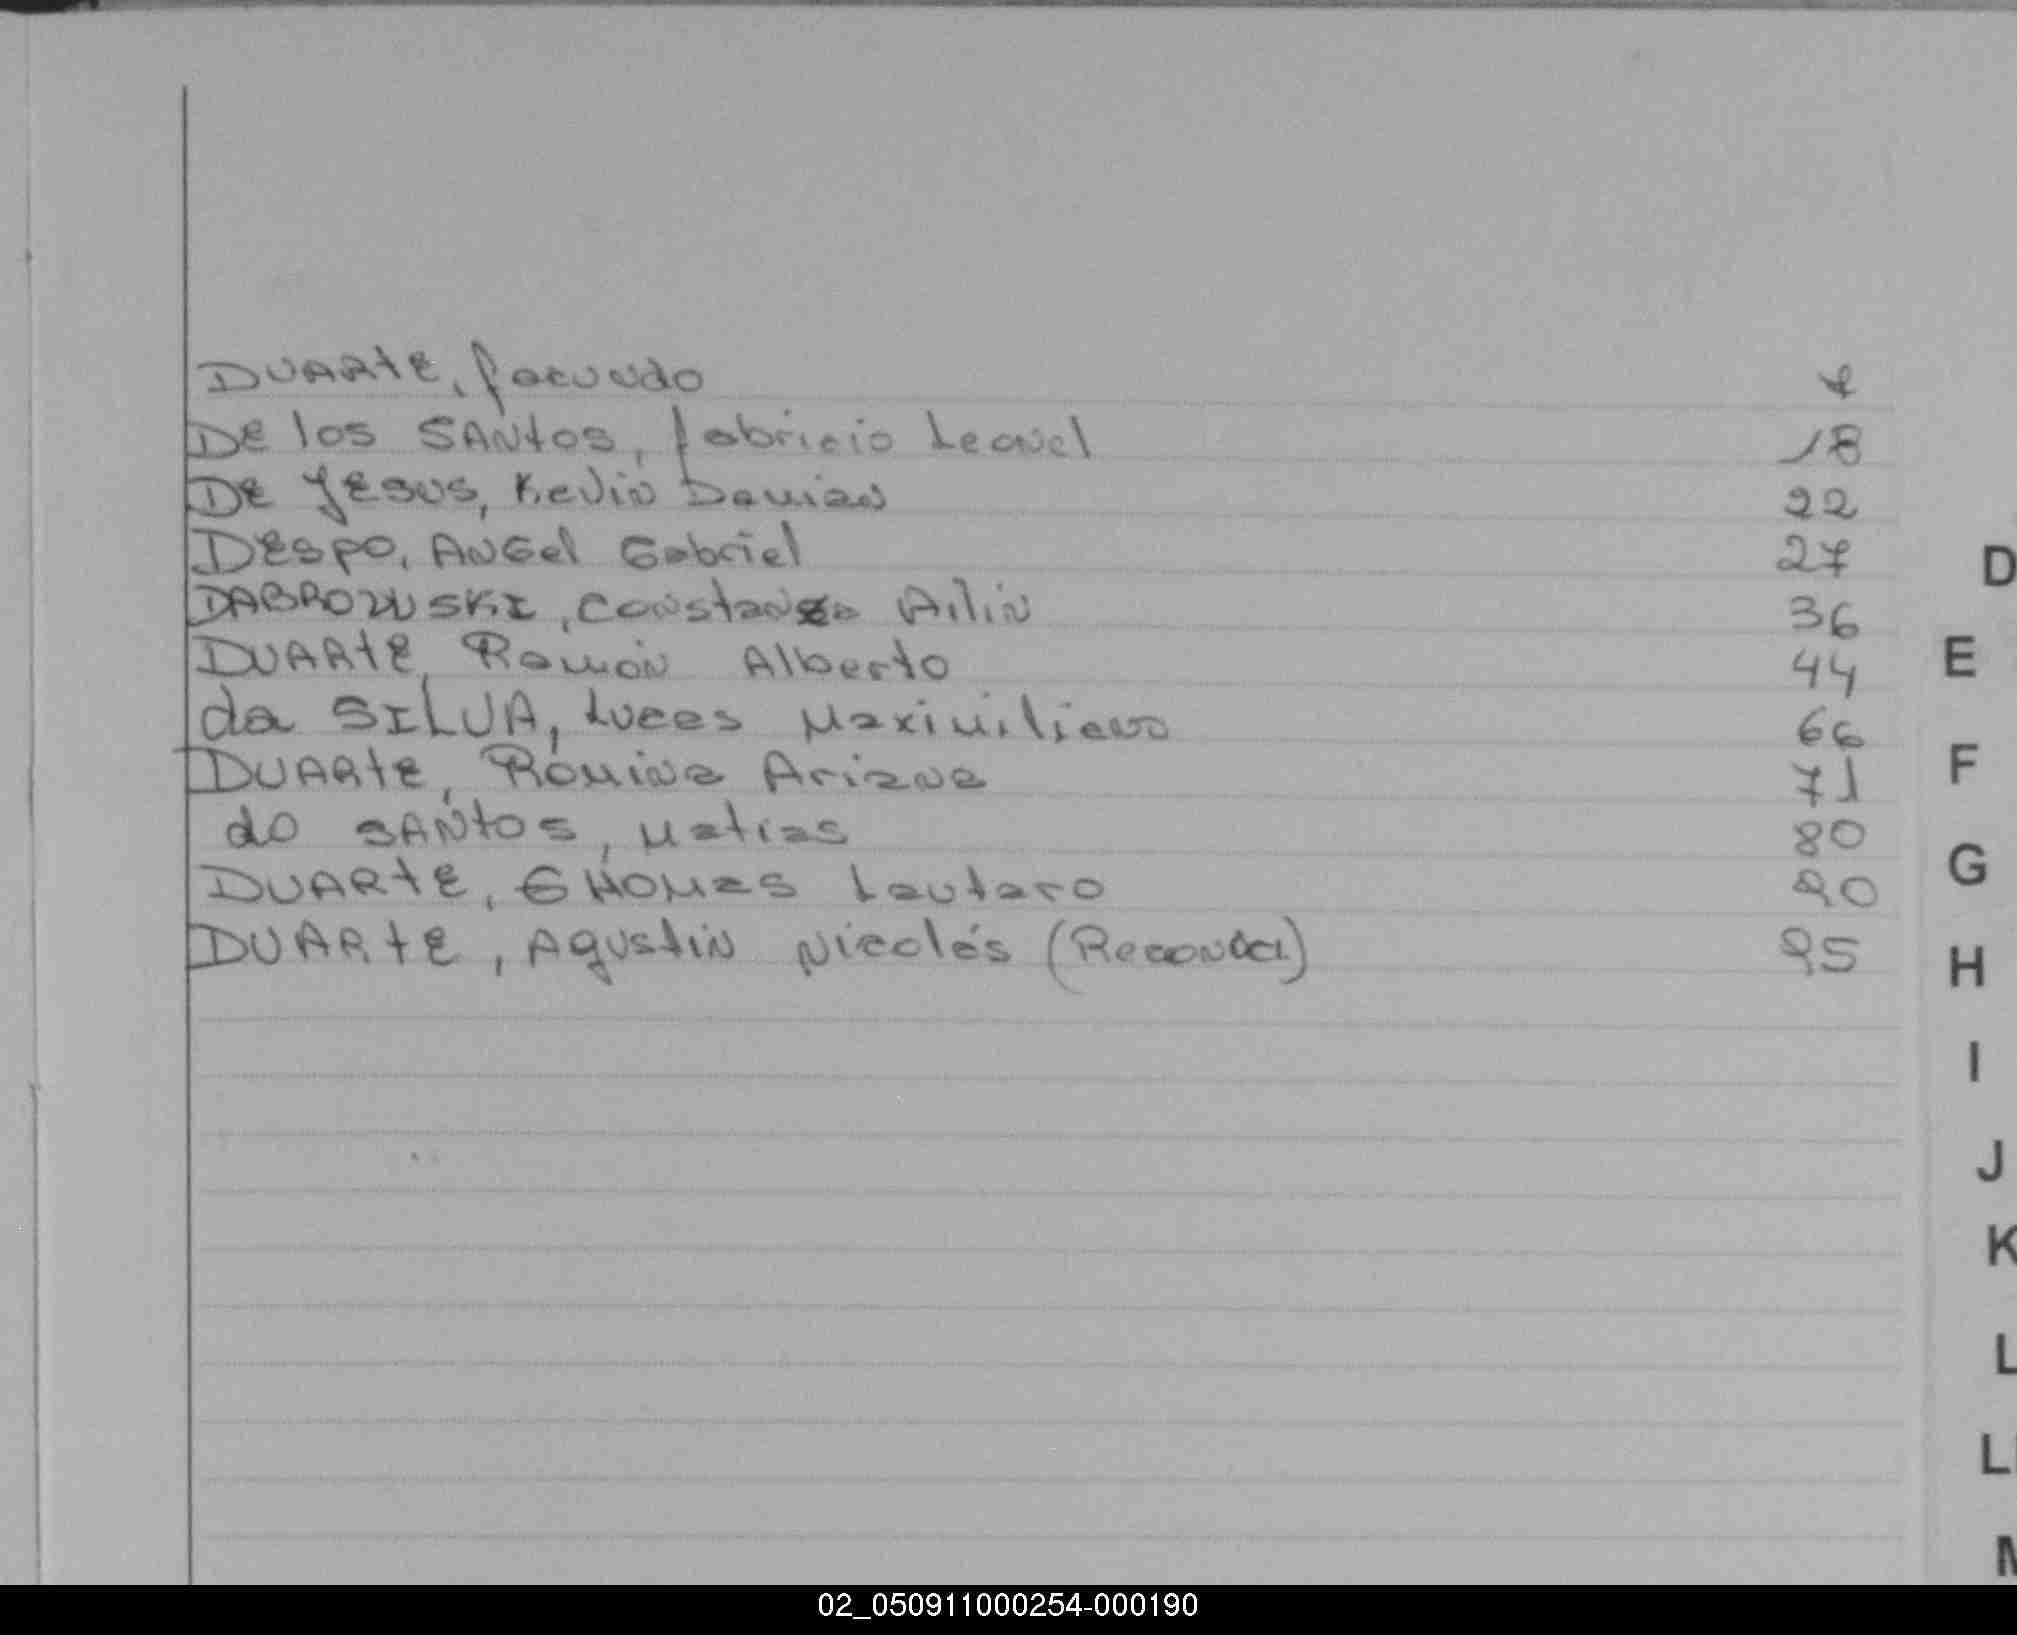 DUARTE, facundo
De los SANtos, fabricio Leonel 18
De Jesus, Kevin Damian 22
Despo, Angel Gabriel 27
DABROWSKI, Constanza Ailin 36
DUARTE, Ramón Alberto 44
da SILVA, Lucas Maximiliano 66
DUARTE, Romina Ariana 71
do SANtos, Matias 80
DUARTE, Lautaro 90
DUARTE, Agustin Nicolás 95
D
E
F
G
H
I
J
K
L
M
02_050911000254-000190